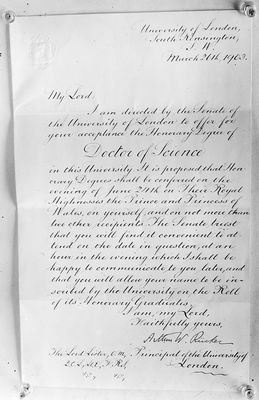 University of London,
South Kensington,
S. W.
March 26th, 1903.
My Lord,
I am directed by the Senate of
the University of London to offer for
your acceptance the Honorary Degree of
Doctor of Science
in this University. It is proposed that Hon-
orary Degrees shall be conferred on the
evening of June 24th on Their Royal
Highnesses the Prince and Princess of
Wales, on yourself, and on not more than
two other recipients. The Senate trust
that you will find it convenient to at-
tend on the date in question, at an
hour in the evening which I shall be
happy to communicate to you later, and
that you will allow your name to be in-
scribed by the University on the Roll
of its Honorary Graduates.
I am, my Lord,
Faithfully yours,
Arthur W. Rücker
The Lord Lister, O.M., Principal of the University of
London.